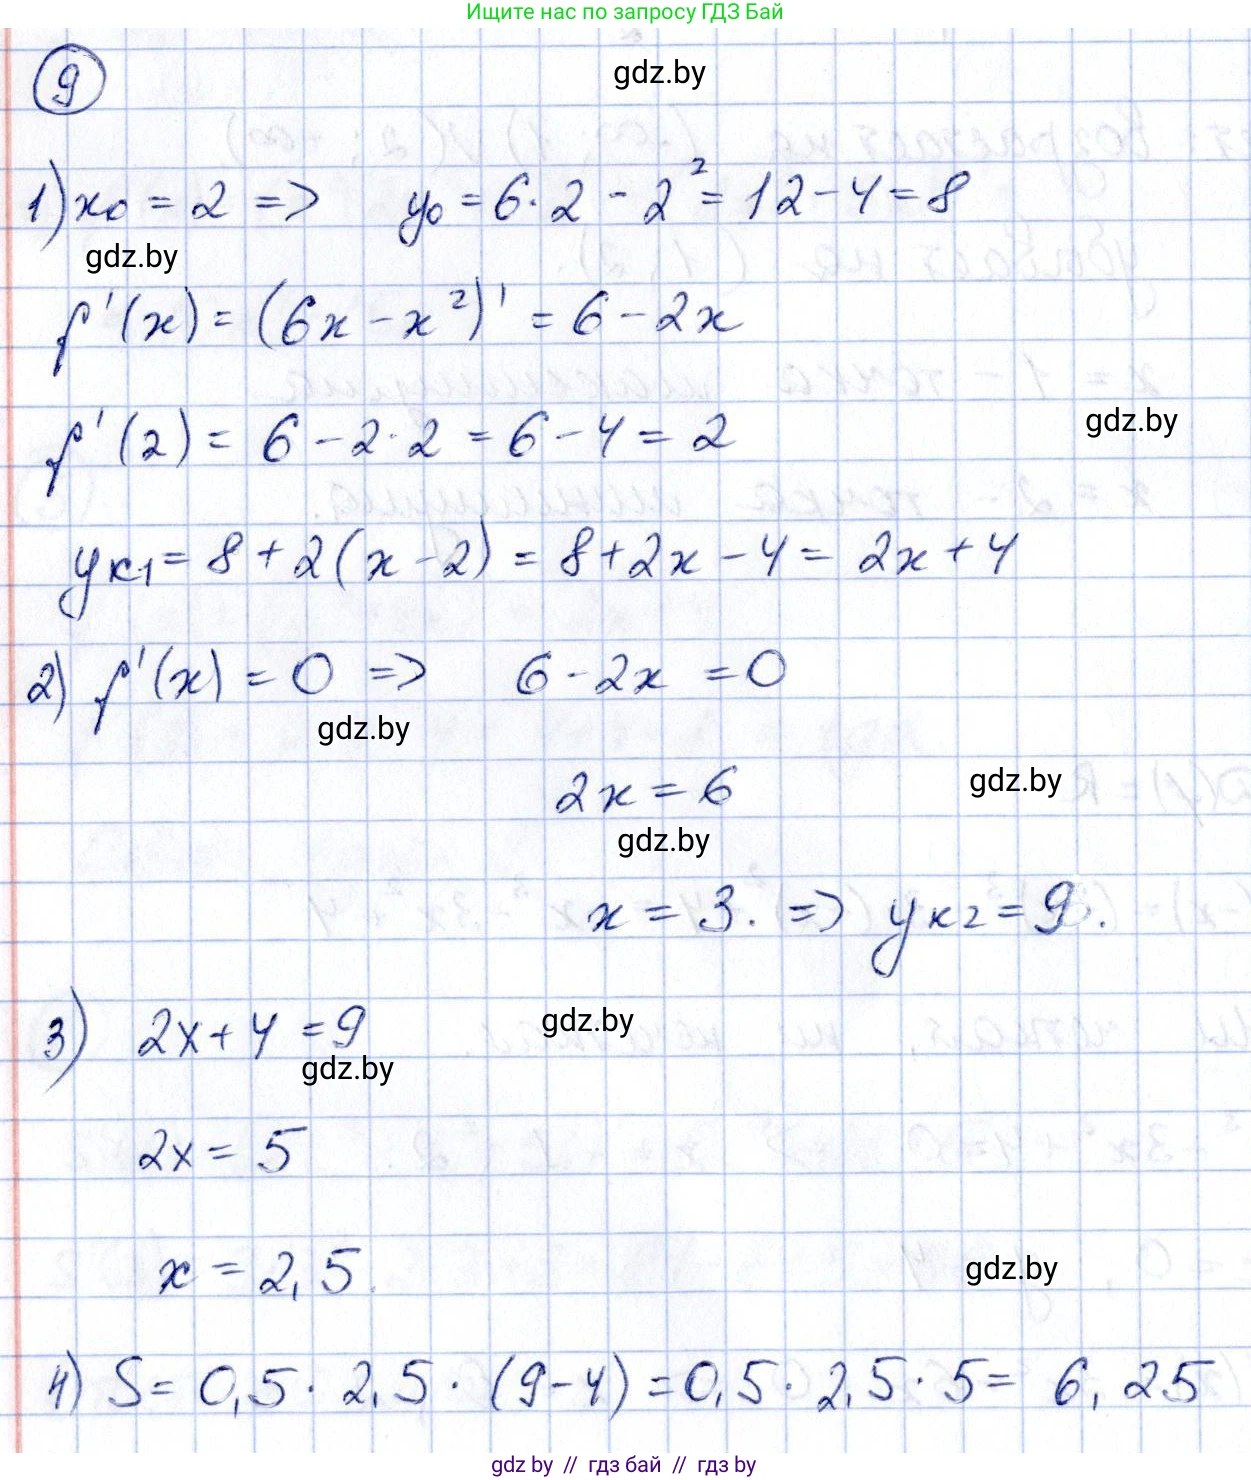 Ищите нас по запросу ГДЗ Бай
9
gdz.by
1) x₀ = 2 => y₀ = 6·2 - 2² = 12 - 4 = 8
gdz.by
f'(x) = (6x - x²)' = 6 - 2x
gdz.by
f'(2) = 6 - 2·2 = 6 - 4 = 2
yк₁ = 8 + 2(x - 2) = 8 + 2x - 4 = 2x + 4
2) f'(x) = 0 => 6 - 2x = 0
gdz.by
2x = 6
gdz.by
gdz.by
x = 3. => yк₂ = 9.
3) 2x + 4 = 9
gdz.by
gdz.by
2x = 5
x = 2,5.
gdz.by
4) S = 0,5 · 2,5 · (9 - 4) = 0,5 · 2,5 · 5 = 6,25
gdz by // гдз бай // гдз by